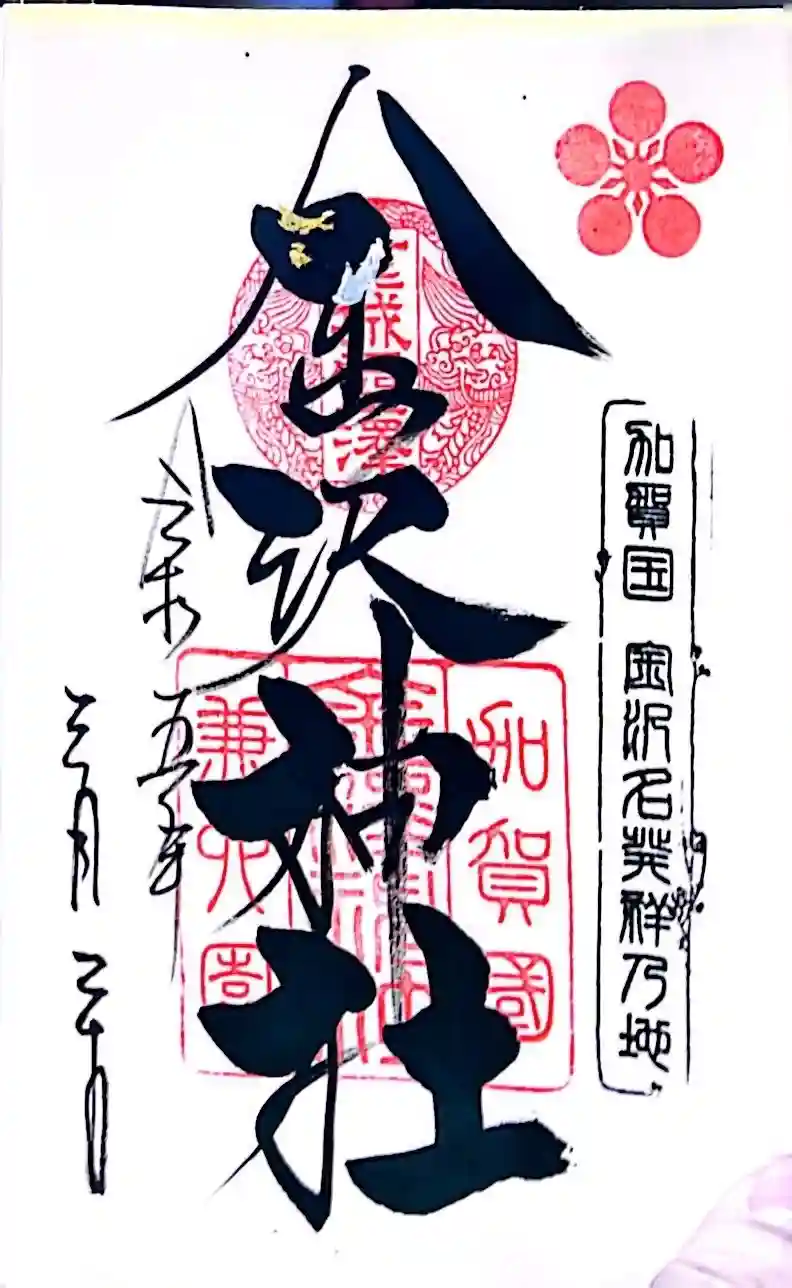 加賀国 金沢名発祥乃地
金沢神社
加賀國
金澤神社
兼六園
令和五年
三月二十日